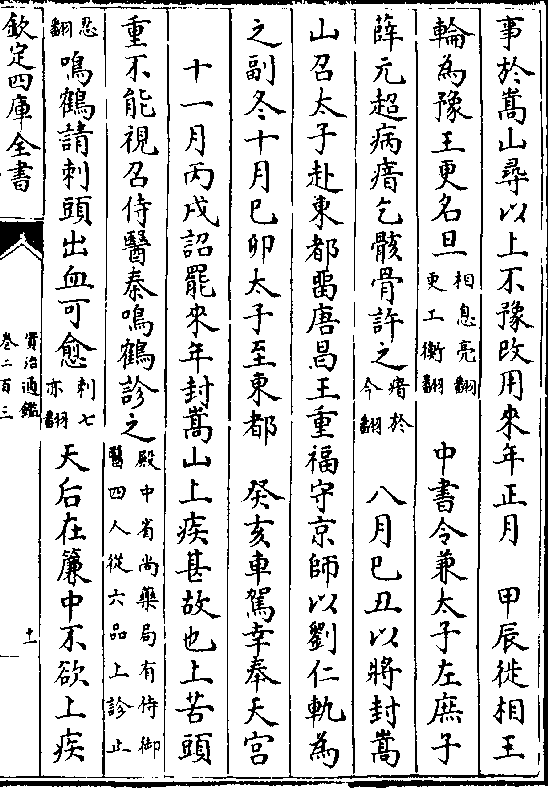 事於嵩山尋以上不豫改用來年正月　甲辰徙相王
輪為豫王更名旦相息亮翻更工衡翻　中書令兼太子左庶子
薛元超病瘖乞骸骨許之瘖於今翻　八月己丑以將封嵩
山召太子赴東都留唐昌王重福守京師以劉仁軌為
之副冬十月己卯太子至東都　癸亥車駕幸奉天宮
十一月丙戌詔罷來年封嵩山上疾甚故也上苦頭
重不能視召侍醫秦鳴鶴診之殿中省尚藥局有侍御醫四人從六品上診止
忍翻鳴鶴請刺頭出血可愈刺七亦翻　天后在簾中不欲上疾
欽定四庫全書
資治通鑑
卷二百三
十一